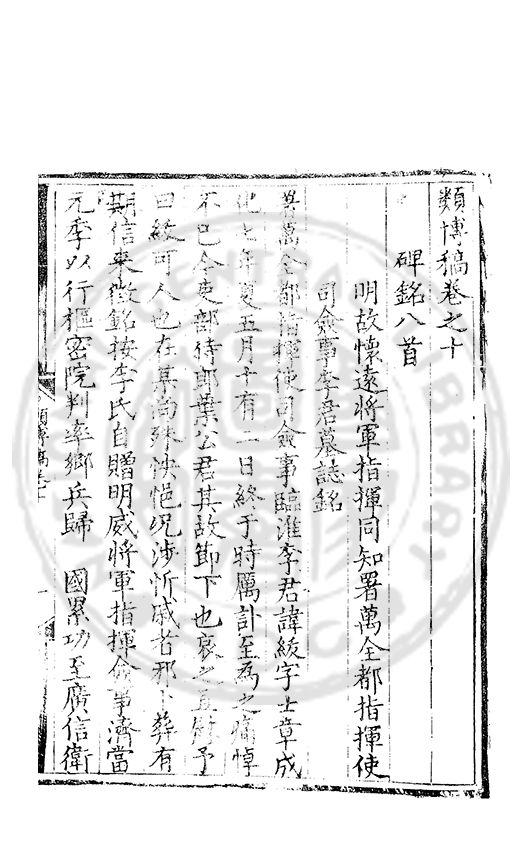 類博稿卷之十
碑銘八首
明故懷遠將軍指揮同知署萬全都指揮使
司僉事李君墓誌銘
署萬全都指揮使司僉事臨淮李君諱綬字士章成
化七年夏五月十有二日終于時厲訃至為之痛悼
不已今吏部侍郎葉公君其故節下也哀之且慰予
曰綬可人也在某尚殊怏悒况涉忻戚者邪卜葬有
期信來徵銘按李氏自贈明威將軍指揮僉事濟當
元季以行樞密院判率鄉兵歸 國累功至廣信衛
類博稿卷十